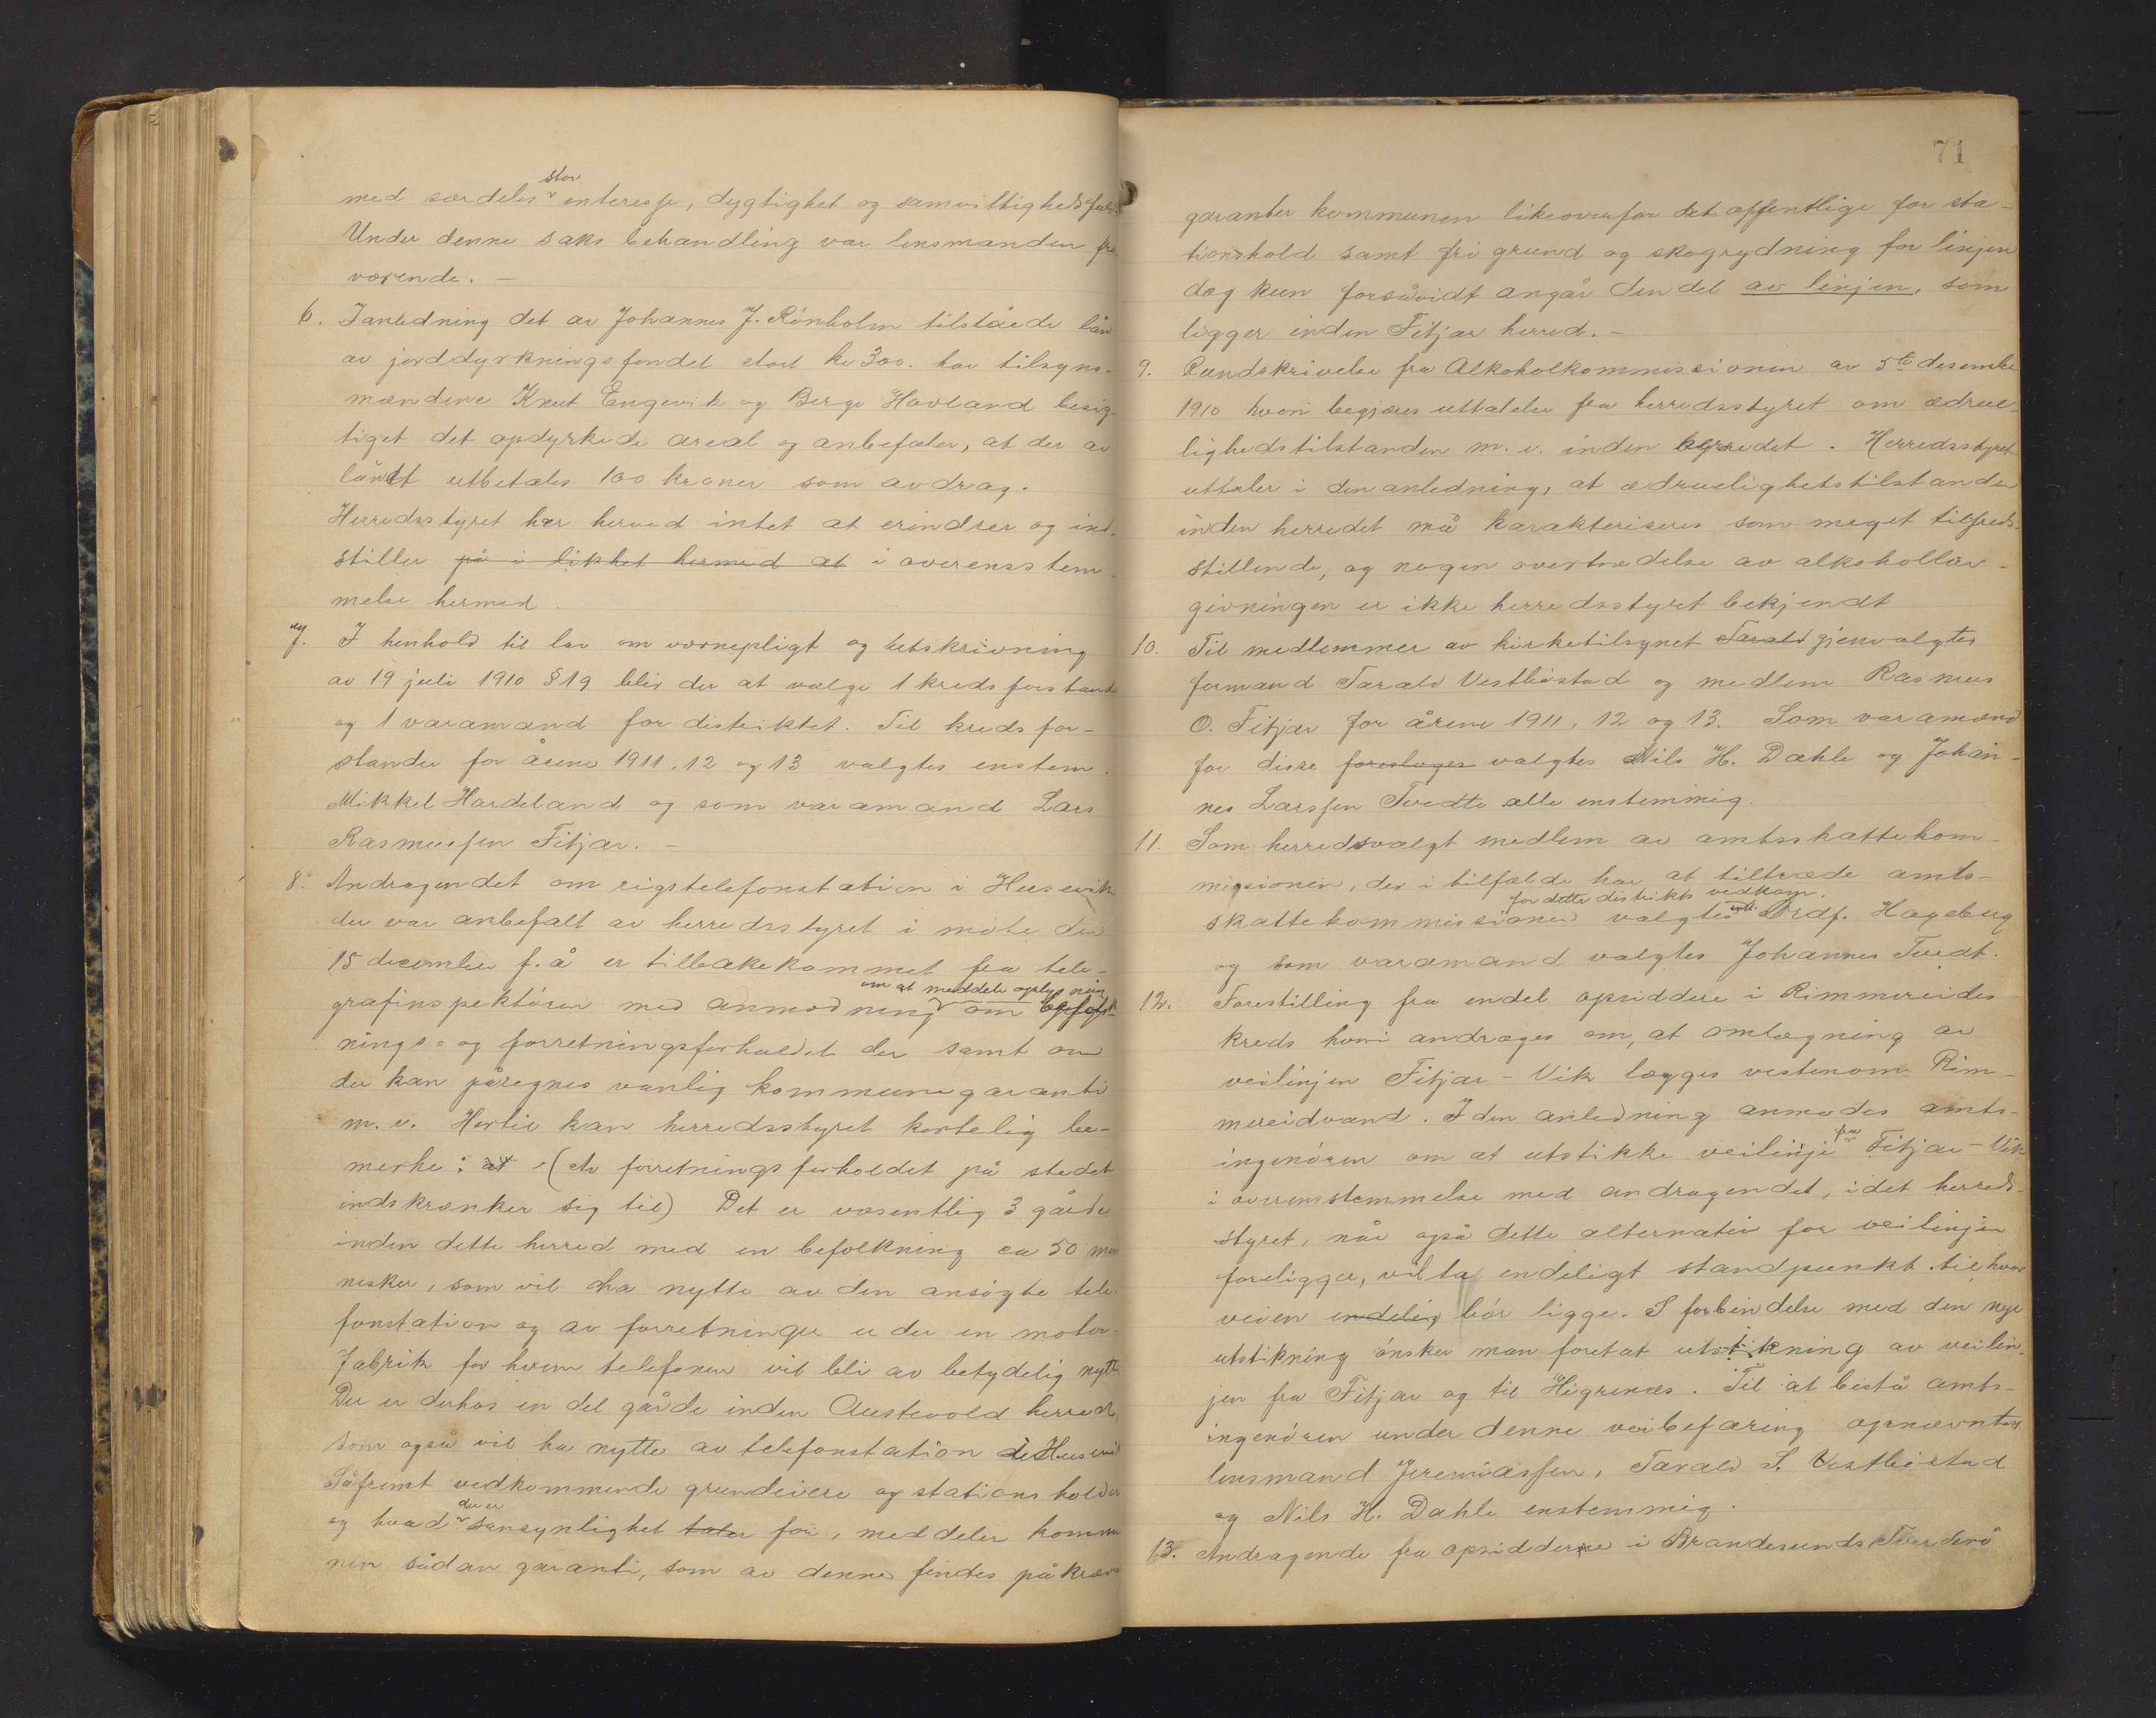 med særdeles stor interesse, dygtighet og samvittighedsfuld
Under denne saks behandling var lensmanden fra
værende. –
6. I anledning det av Johannes J. Rönholm tilståede lån
av jorddyrkningsfondet stort kr 300. har tilsyns-
mændene Knut Engevik og Berge Havland besig-
tiget det opdyrkede areal og anbefaler, at der av
lånet utbetales 100 kroner som avdrag.
Herredsstyret har herved intet at erindrer og ind.
stiller på i likhet hermed at i overensstem-
melse hermed.
7. I henhold til lov om værnepligt og utskrivning
av 19 juli 1910 § 19 blir der at vælge 1 kredsforstande
og 1 varamand for distriktet. Til kredsfor-
stander for årene 1911. 12 og 13 valgtes enstem.
Mikkel Hardeland og som varamand Lars
Rasmussen Fitjar. –
8. Andragendet om rigstelefonstation i Husevik
der var anbefalt av herredsstyret i möte den
15 december f. å er tilbakekommet fra tele-
om at meddele oplysning
grafinspektören med anmodning om befolk-
nings- og forretningsforholdet der samt om
der kan påregnes vanlig kommunegaranti
m. v. Hertil kan herredsstyret kortelig be-
merke: at (Av forretningsforholdet på stedet
indskrænker sig til) Det er væsentlig 3 gårde
inden dette herred med en befolkning ca 50 men
nesker, som vil ha nytte av den ansögte tele-
fonstation og av forretninger er der en motor-
fabrik for hvem telefonen vil bli av betydelig nytte
Der er derhos en del gårde inden Austevold herred
som også vil ha nytte av telefonstation i Husevik
Såfremt vedkommende grundeiere og stationsholder
der er
og hvad sansynlighet taler for, meddeler kommu
nen sådan garanti, som av denne findes påkræve
71
garanter kommunen likeoverfor det offentlige for sta-
tionshold samt fri grund og skogrydning for linjen
dog kun forsåvidt angår den del av linjen, som
ligger inden Fitjar herred. –
9. Rundskrivelse fra Alkoholkommissionen av 5te desember
1910 hvori begjæres uttalelse fra herredsstyret om ædrue-
lighedstilstanden m. v. inden herredet. Herredsstyret
uttaler i den anledning, at ædruelighetstilstanden
inden herredet må karakteriseres som meget tilfreds-
stillende, og nogen overtrædelse av alkohollov-
givningen er ikke herredsstyret bekjendt
10. Til medlemmer av kirketilsynet Tarald gjenvalgtes
formand Tarald Vestböstad og medlem Rasmus
O. Fitjar for årene 1911. 12 og 13. Som varamænd
for disse foreslåges valgtes Nils H. Dahle og Johan-
nes Larssen Tvedte alle enstemmig.
11. Som herredsvalgt medlem av amtsskattekom-
missionen, der i tilfælde har at tiltræde amts-
for dette distrikts vedkom.
skattekommissionen valgtes Ordf. Hageberg
og som varamand valgtes Johannes Tvedt.
12. Forestilling fra endel opsiddere i Rimmereides
kreds hvori andrages om, at omlægning av
veilinjen Fitjar – Vik lægges vestenom Rim-
mereidvand. I den anledning anmodes amts-
ingeniören om at utstikke veilinje fra Fitjar – Vik
i overensstemmelse med andragendet, idet herreds-
styret, når også dette alternativ for veilinjen
foreligger, vil ta endeligt standpunkt til hvor
veien endelig bör ligge. I forbindelse med den nye
utstikning önsker man foretat utstikning av veilin-
jen fra Fitjar og til Higrenæs. Til at bistå amts-
ingeniören under denne veibefaring opnævntes
lensmand Jeremiassen, Tarald S. Vestböstad
og Nils H. Dahle enstemmig.
13. Andragende fra opsidderne i Brandesunds Tverderö